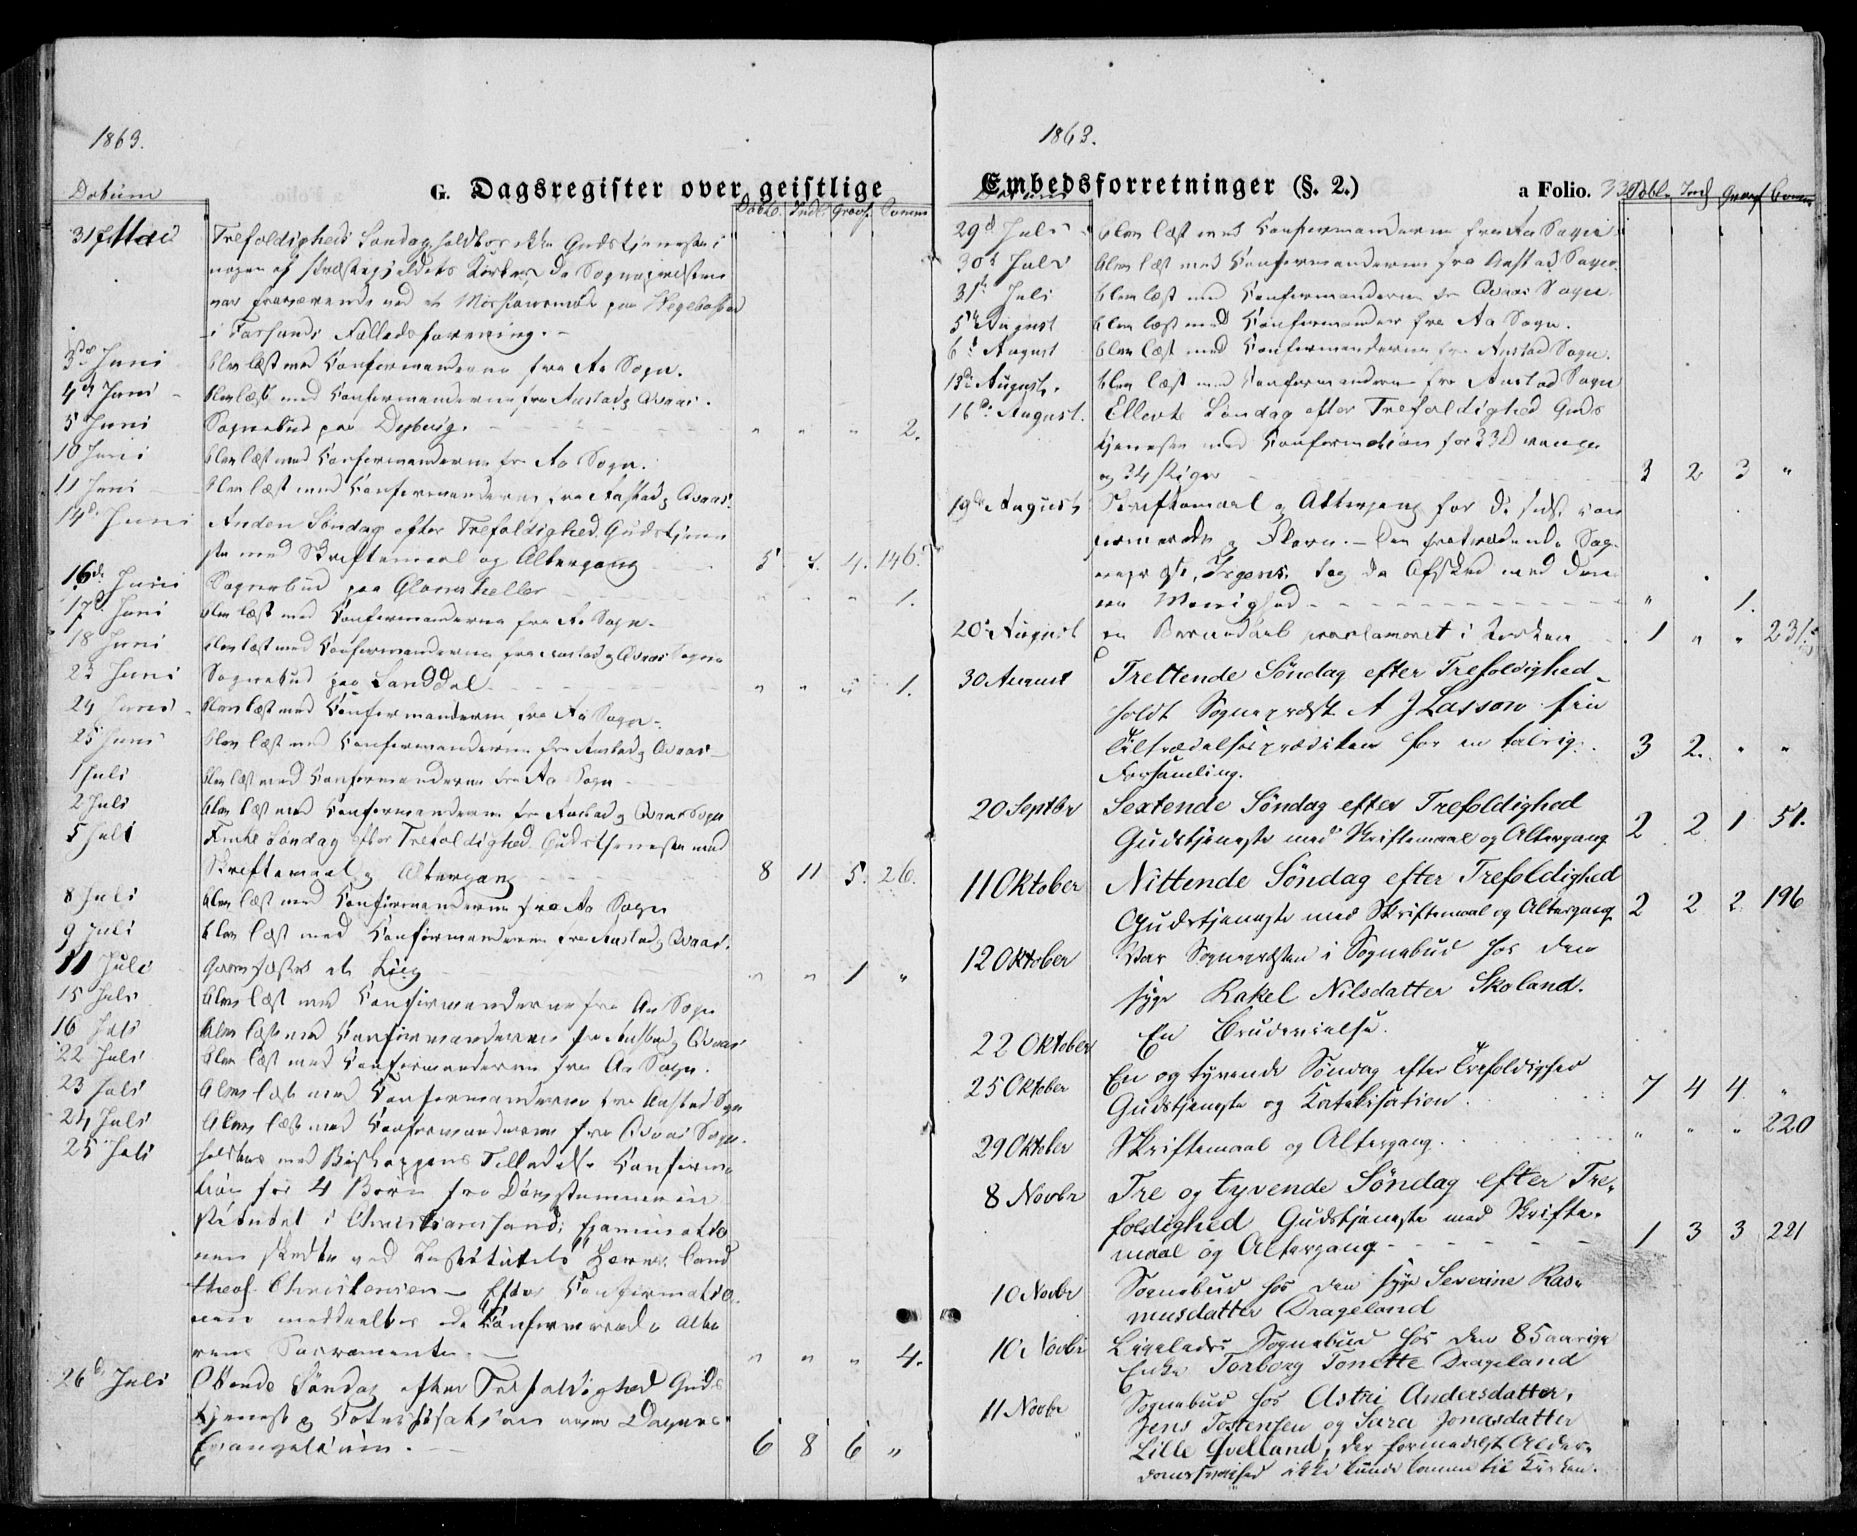 1863.
G. Dagsregister over geistlige
Datum Døbte. Indl. Graaf. Comm
31 Mai Trefoldigheds Søndag holdtes ikke Gudstjeneste i
nogen af Præstegjældets Kirker, da Sognepræsten
var fraværende ved et Missionsmøde paa Hegebostad
i Farsunds Fælledsforening. -
3die Juni blev læst med Confirmanderne fra Aa Sogn.
4de Juni blev læst med Confirmanderne fra Austad og Qvaas.
5 Juni Sognebud paa Dyberg. " " " 2.
10 Juni blev læst med Confirmanderne fra Aa Sogn.
11 Juni blev læst med Confirmanderne fra Austad og Qvaas.
14de Juni Anden Søndag efter Trefoldighed. Gudstjene
ste med Skriftemaal og Altergang 5 7. 4. 146.
16de Juni Sognebud paa " " " 1.
17de Juni blev læst med Confirmanderne fra Aa Sogn.
18 Juni blev læst med Confirmanderne fra Austad og Qvaas Sogne
23 Juni Sognebud paa Landdal " " " 1.
24 Juni blev læst med Confirmanderne fra Aa Sogn.
25 Juni blev læst med Confirmanderne fra Austad og Qvaas
1 Juli blev læst med Confirmanderne fra Aa Sogn
2 Juli blev læst med Confirmanderne fra Austad og Qvaas Sogn
5 Juli Femte Søndag efter Trefoldighed. Gudstjeneste med
Skriftemaal og Altergang 8 11 5. 26.
8 Juli blev læst med Confirmanderne fra Aa Sogn
9 Juli blev læst med Confirmanderne fra Austad og Qvaas.
11 Juli Gravfæstes et Liig " " 1 "
15 Juli blev læst med Confirmanderne fra Aa Sogn
16 Juli blev læst med Confirmanderne fra Austad og Qvaas
22 Juli blev læst med Confirmanderne fra Aa Sogn.
23 Juli blev læst med Confirmanderne fra Austad Sogn
24 Juli blev læst med Confirmanderne fra Qvaas Sogn.
25 Juli holdtes med Biskoppens Tilladelse Confirma
tion for 4 Børn fra Døvstummein
stitutet i Christianssand; Examinatio
nen skedte ved Institutets Lærer, Cand
theol. Christensen - Efter Confirmatio
nen meddeeltes de Confirmerede Alte
rens Sacramente. " " " 4.
26de Juli Ottende Søndag efter Trefoldighed Guds
tjeneste og Catechisation over Dagens
Evangelium. 6 8 6 "
1863.
Embedsforretninger (§. 2.) a Folio.
Datum Døbte Indl Graaf Comm
29de Juli blev læst med Confirmanderne fra Aa Sogn
30te Juli blev læst med Confirmanderne fra Austad Sogn.
31te Juli blev læst med Confirmanderne fra Qvaas Sogn.
5te August blev læst med Confirmander fra Aa Sogn.
6te August blev læst med Confirmanderne fra Austad Sogn.
13de August. blev læst med Confirmanderne fra Austad Sogn
16de August. Ellevte Søndag efter Trefoldighed Guds
tjeneste med Confirmation for 23 Drenge
og 24 Piger 3 2 3 "
19de August Skriftemaal og Altergang for de sidst con
firmerede og Flere. - Den fratrædende Sog
nepræst, Irgens, tog da Afsked med den
ne Menighed " 1.
20de August en Barnedaab proclameret i Kirken 1 " " 231
30 August Trettende Søndag efter Trefoldighed
holdt Sognepræst A J Lasson sin
Tiltrædelsesprædiken for en talrig
Forsamling. 3 2. " "
20 Septbr Sextende Søndag efter Trefoldighed
Gudstjeneste med Skriftemaal og Altergang 2 2 1 51.
11 Oktober Nittende Søndag efter Trefoldighed
Gudstjeneste med Skriftemaal og Altergang 2 2 2 196
12 Oktober Var Sognepræsten i Sognebud hos den
syge Rakel Nilsdatter Skoland.
22 Oktober En Brudevielse.
25 Oktober En og tyvende Søndag efter Trefoldighed
Gudstjeneste og Katekisation. 7 4 4. "
29 Oktober Skriftemaal og Altergang. " " " 220
8 Novbr Tre og tyvende Søndag efter Tre-
foldighed Gudstjeneste med Skrifte-
maal og Altergang 1 3 3 221
10 Novbr Sognebud hos den syge Severine Ras-
musdatter Drageland
10 Novbr Ligeledes Sognebud hos den 85aarige
Enke Torborg Tonette Drageland
11 Novbr Sognebud hos Astri Andersdatter,
Jens Tostensen og Sara Jonasdatter
Lille Qvelland, der formedelst Alder-
domssvaghed ikke kunde komme til Kirken.